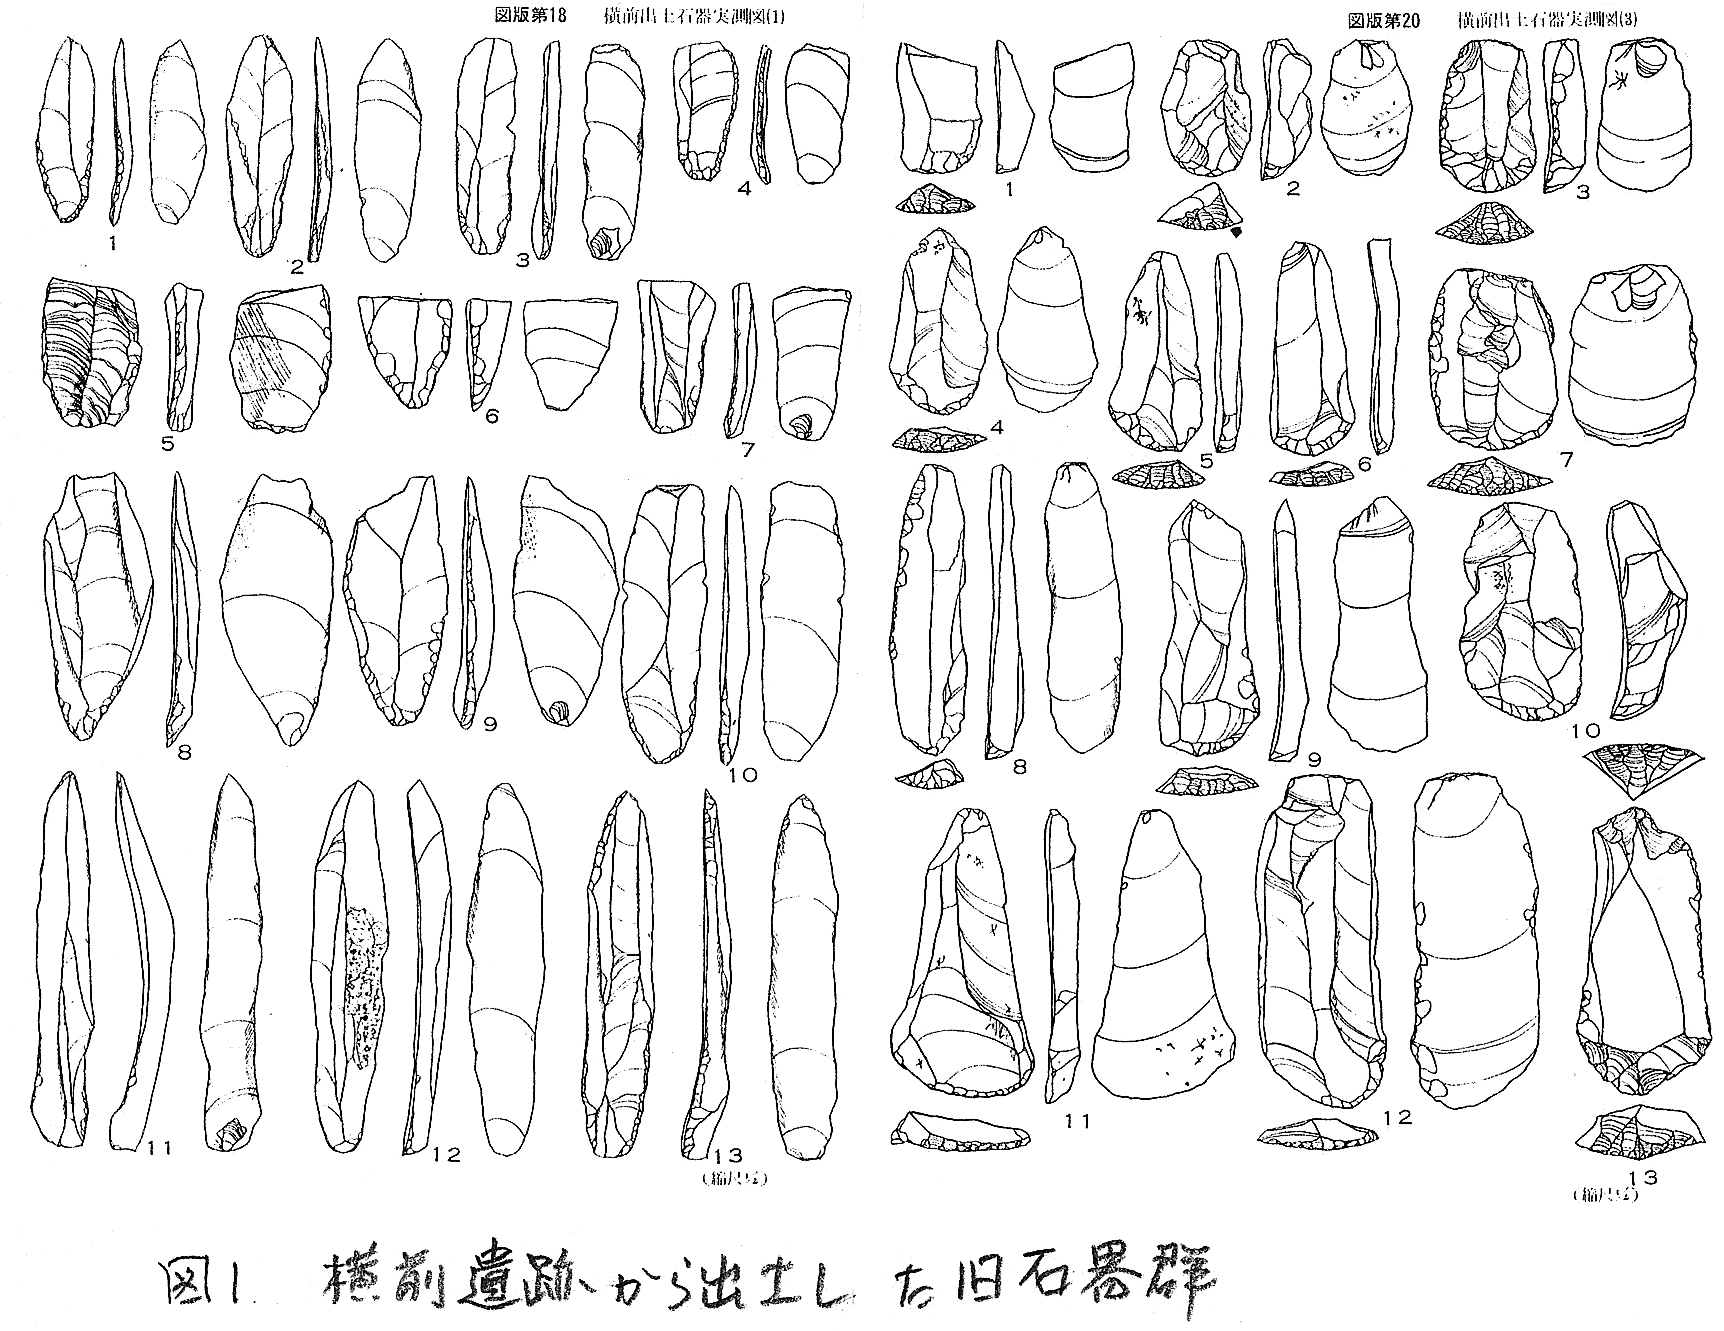 図版第18 横前出土石器実測図(1)
1
2
3
4
5
6
7
8
9
10
11
12
13
(縮尺½)
図版第20 横前出土石器実測図(3)
1
2
3
4
5
6
7
8
9
10
11
12
13
(縮尺½)
図1. 横前遺跡から出土した旧石器群